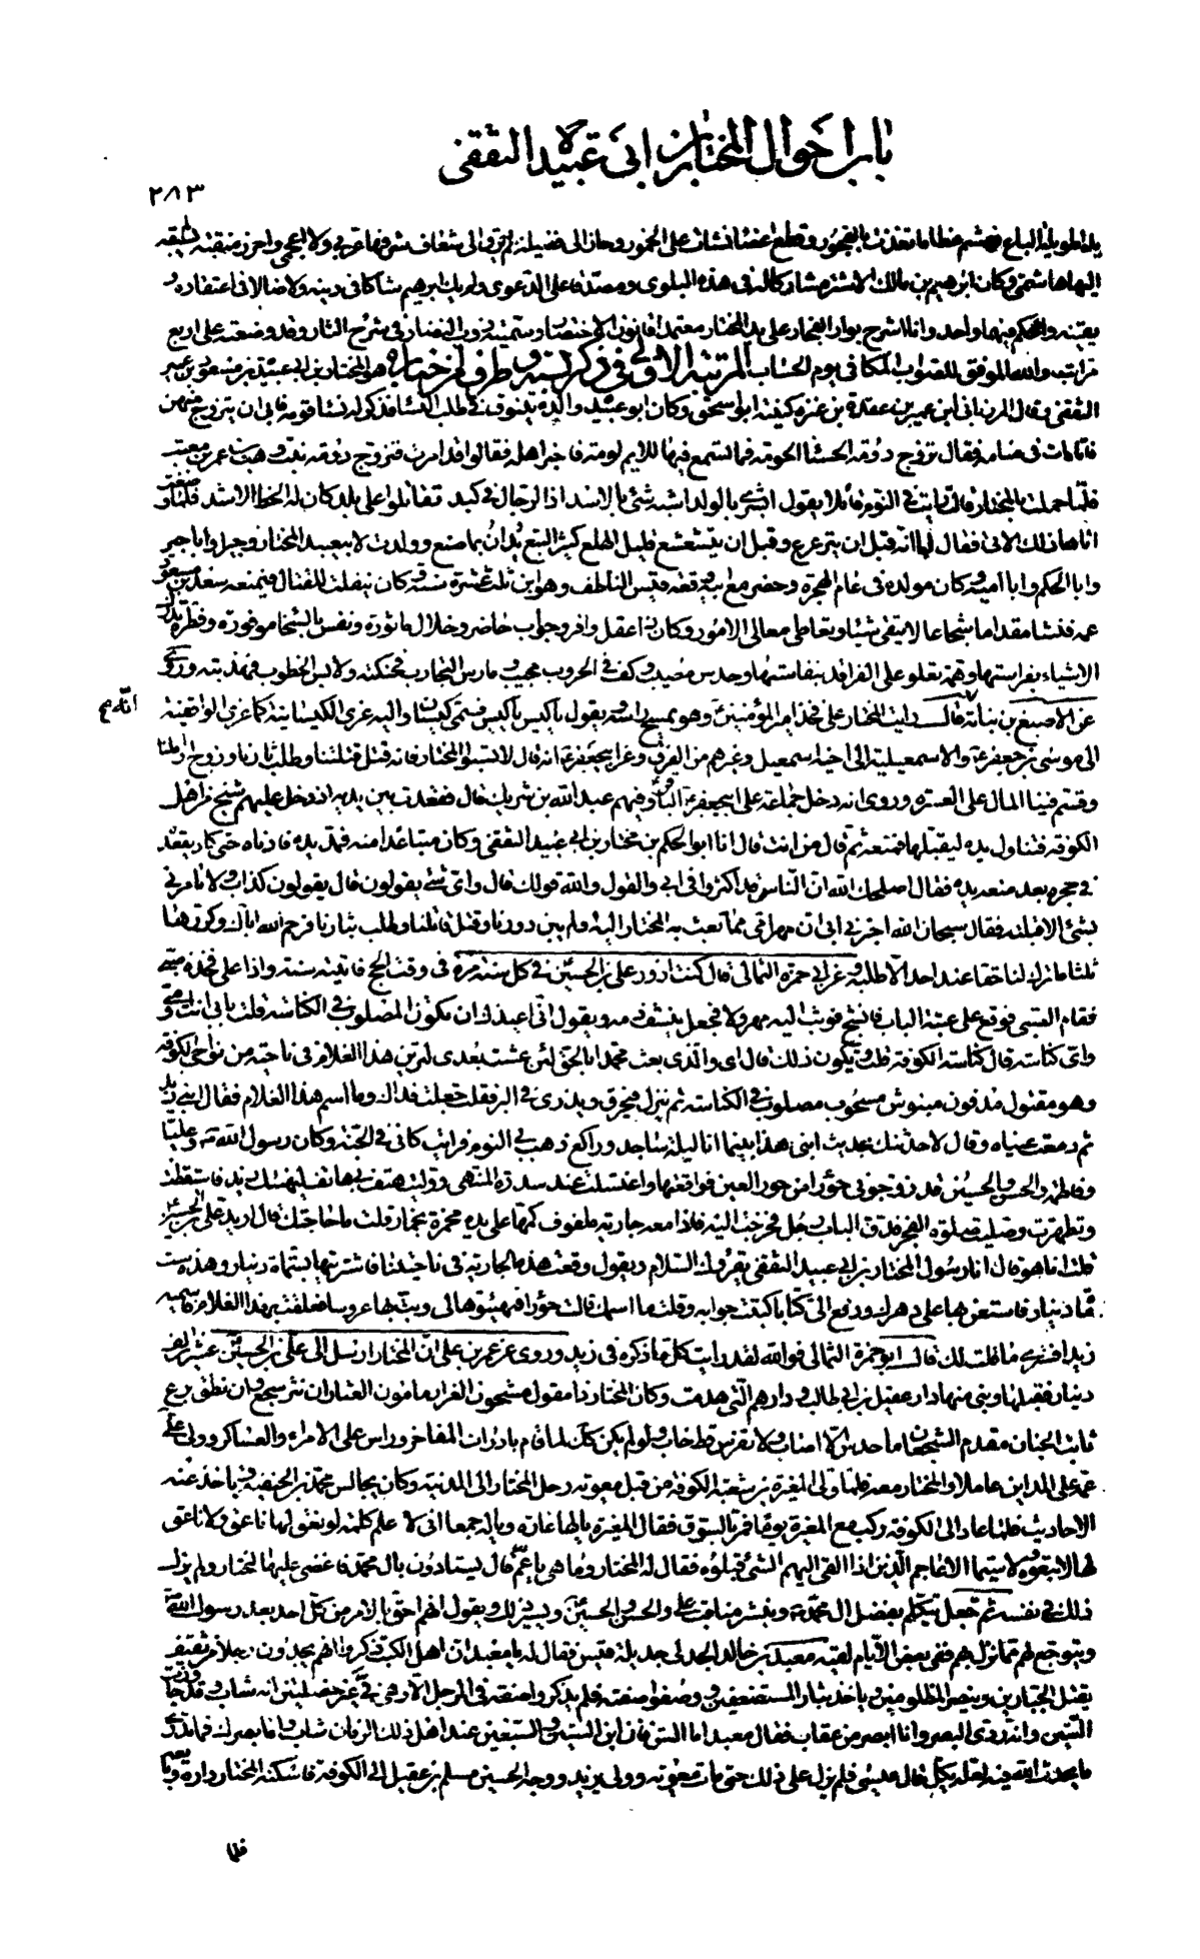 باب احوال المختار بن ابى عبيدة الثقفى
٢٨٣
اليها هاشمى وكان ابرهيم بن مالك الاشتر مشاركا له فى هذه البلوى ومصدقا على الدعوى ولم يك ابرهيم شاكا فى دينه ولا ضالا فى اعتقاده و
يقينه والحكم فيهما واحد وانا اشرح بوار الفجار على يد المختار معتمدا قانون الاختصار وسميته ذوب النضار فى شرح الثار وقد وضعته على اربع
مراتب والله الموفق للصواب المكافى يوم الحساب المرتبة الاولى فى ذكر نسبه وطرف من اخباره هو المختار بن ابى عبيد بن مسعود بن عمير
الثقفى وقال المرزبانى ابن عمير بن عقدة بن عنزة كنيته ابو اسحق وكان ابو عبيد والده يتنوق فى طلب النساء فذكر له نساء قومه فابى ان يتزوج منهن
فاتاه ات فى منامه فقال تزوج دومة الحسناء الحومة فما تسمع فيها للائم لومة فاخبر اهله فقالوا قد امرت فتزوج دومة بنت وهب بن عمر بن معتب
فلما حملت بالمختار قالت رايت فى النوم قائلا يقول ابشرى بالولد اشبه شئ بالاسد اذا الرجال فى كبد تقاتلوا على بلد كان له الحظ الاشد فلما وضعت
اتاها ذلك الاتى فقال لها انه قبل ان يترعرع وقبل ان يتشعشع قليل الهلع كثير التبع يدان بما صنع وولدت لابى عبيد المختار وجبرا وابا جبر
وابا الحكم وابا امية وكان مولده فى عام الهجرة وحضر مع ابيه وقعة قس الناطف وهو ابن ثلث عشرة سنة وكان يتفلت للقتال فيمنعه سعد بن مسعود
عمه فنشا مقداما شجاعا لا يتقى شيئا وتعاطى معالى الامور وكان ذا عقل وافر وجواب حاضر وخلال ماثورة ونفس بالسخاء موفورة وفطرة تدرك
الاشياء بفراستها وهمة تعلو على الفراقد بنفاستها وحدس مصيب وكف فى الحروب مجيب ومارس التجارب فحنكته ولابس الخطوب فهذبته وروى
انه م
عن الاصبغ بن نباتة قال رايت المختار على فخذ امير المؤمنين وهو يمسح راسه ويقول ياكيس ياكيس فسمى كيسان واليه عزى الكيسانية كما عزى الواقفية
الى موسى بن جعفر والاسمعيلية الى اخيه اسمعيل وغيرهم من الفرق وعن ابى جعفر انه قال لا تسبوا المختار فانه قتل قتلتنا وطلب ثارنا وزوج اراملنا
وقسم فينا المال على العسرة وروى انه دخل جماعة على ابى جعفر الباقر وفيهم عبد الله بن شريك قال فقعدت بين يديه اذ دخل عليهم شيخ من اهل
الكوفة فتناول يده ليقبلها فمنعه ثم قال من انت قال انا ابو الحكم بن مختار بن ابى عبيد الثقفى وكان متباعدا منه فمد يده فادناه حتى كاد يقعده
فى حجره بعد منعه يده فقال اصلحك الله ان الناس قد اكثروا فى ابى والقول والله قولك قال واى شئ يقولون قال يقولون كذاب ولا تامرنى
بشئ الا قبلته فقال سبحان الله اخبرنى ابى ان مهر امى مما بعث به المختار اليه اولم يبن دورنا وقتل قاتلنا وطلب بثارنا فرحم الله اباك وكررها
ثلثا ما ترك لنا حقا عند احد الا طلبه وعن ابى حمزة الثمالى قال كنت ازور على بن الحسين فى كل سنة مرة فى وقت الحج فاتيته سنة واذا على فخذه صبى
فقام الصبى فوقع على عتبة الباب فانشج فوثب اليه مهرولا فجعل ينشف دمه ويقول انى اعيذك ان تكون المصلوب فى الكناسة قلت بابى انت وامى و
واى كناسة قال كناسة الكوفة قلت ويكون ذلك قال اى والذى بعث محمدا بالحق لئن عشت بعدى لترين هذا الغلام فى ناحية من نواحى الكوفة
وهو مقتول مدفون منبوش مسحوب مصلوب فى الكناسة ثم ينزل فيحرق ويذرى فى البر فقلت جعلت فداك وما اسم هذا الغلام فقال ابنى زيد
ثم دمعت عيناه وقال لاحدثنك بحديث ابنى هذا بينما انا ليلة ساجد وراكع ذهب بى النوم فرايت كانى فى الجنة وكان رسول الله وعليا
وفاطمة والحسن والحسين قد زوجونى حوراء من حور العين فواقعتها واغتسلت عند سدرة المنتهى ووليت هتف بى هاتف ليهنئك زيد فاستيقظت
وتطهرت وصليت صلوة الفجر فدق الباب رجل فخرجت اليه فاذا معه جارية ملفوف كمها على يده مخمرة بخمار قلت ما حاجتك قال اريد على بن الحسين
قلت انا هو قال انا رسول المختار بن ابى عبيد الثقفى يقرؤك السلام ويقول وقعت هذه الجارية فى ناحيتنا فاشتريتها بستمائة دينار وهذه ست
مائة دينار فاستعن بها على دهرك ودفع الى كتابا كتبت جوابه وقلت ما اسمك قالت حوراء فهيئوها لى وبت بها عروسا فعلقت بهذا الغلام فاسميته
زيدا وسترى ما قلت لك قال ابو حمزة الثمالى فوالله لقد رايت كل ما ذكره فى زيد وروى عن عمر بن على ان المختار ارسل الى على بن الحسين عشرين الف
دينار فقبلها وبنى منها دار عقيل بن ابى طالب ودارهم التى هدمت وكان المختار ذا مقول مشحوذ الغرار مامون العثار ان نثر سجع وان نطق برع
ثابت الجنان مقدم الشجعان ما حدس الا اصاب ولا تفرس قط فخاب ولو لم يكن كذلك لما قام بادوات المفاخر وراس على الامراء والعساكر وولى على
عمه على المداين عاملا والمختار معه فلما ولى المغيرة بن شعبة الكوفة من قبل معوية رحل المختار الى المدينة وكان يجالس محمد بن الحنفية وياخذ عنه
الاحاديث فلما عاد الى الكوفة ركب مع المغيرة يوما فمر بالسوق فقال المغيرة يا لها غارة ويا له جمعا انى لاعلم كلمة لو نعق لها ناعق ولا ناعق
لها لاتبعوه لا سيما الاعاجم الذين اذا القى اليهم الشئ قبلوه فقال له المختار وما هى يا عم قال يستادون بال محمد فاغضى عليها المختار ولم يزل
ذلك فى نفسه ثم جعل يتكلم بفضل ال محمد وينشر مناقب على والحسن والحسين ويسير ذلك ويقول انهم احق بالامر من كل احد بعد رسول الله
ويتوجع لهم مما نزل بهم ففى بعض الايام لقيه معبد بن خالد الجدلى جديلة قيس فقال له يا معبد ان اهل الكتب ذكروا انهم يجدون رجلا من ثقيف
يقتل الجبارين وينصر المظلومين وياخذ بثار المستضعفين ووصفوا صفته فلم يذكروا صفة فى الرجل الا وهى فى غير خصلتين انه شاب وقد جاوزت
الستين وانه ردى البصر وانا ابصر من عقاب فقال معبد اما السن فان ابن الستين والسبعين عند اهل ذلك الزمان شاب واما بصرك فما تدرى
ما يحدث الله فيه لعله يكل قال عسى فلم يزل على ذلك حتى مات معوية وولى يزيد ووجه الحسين مسلم بن عقيل الى الكوفة فاسكنه المختار داره وبايعه
فلما